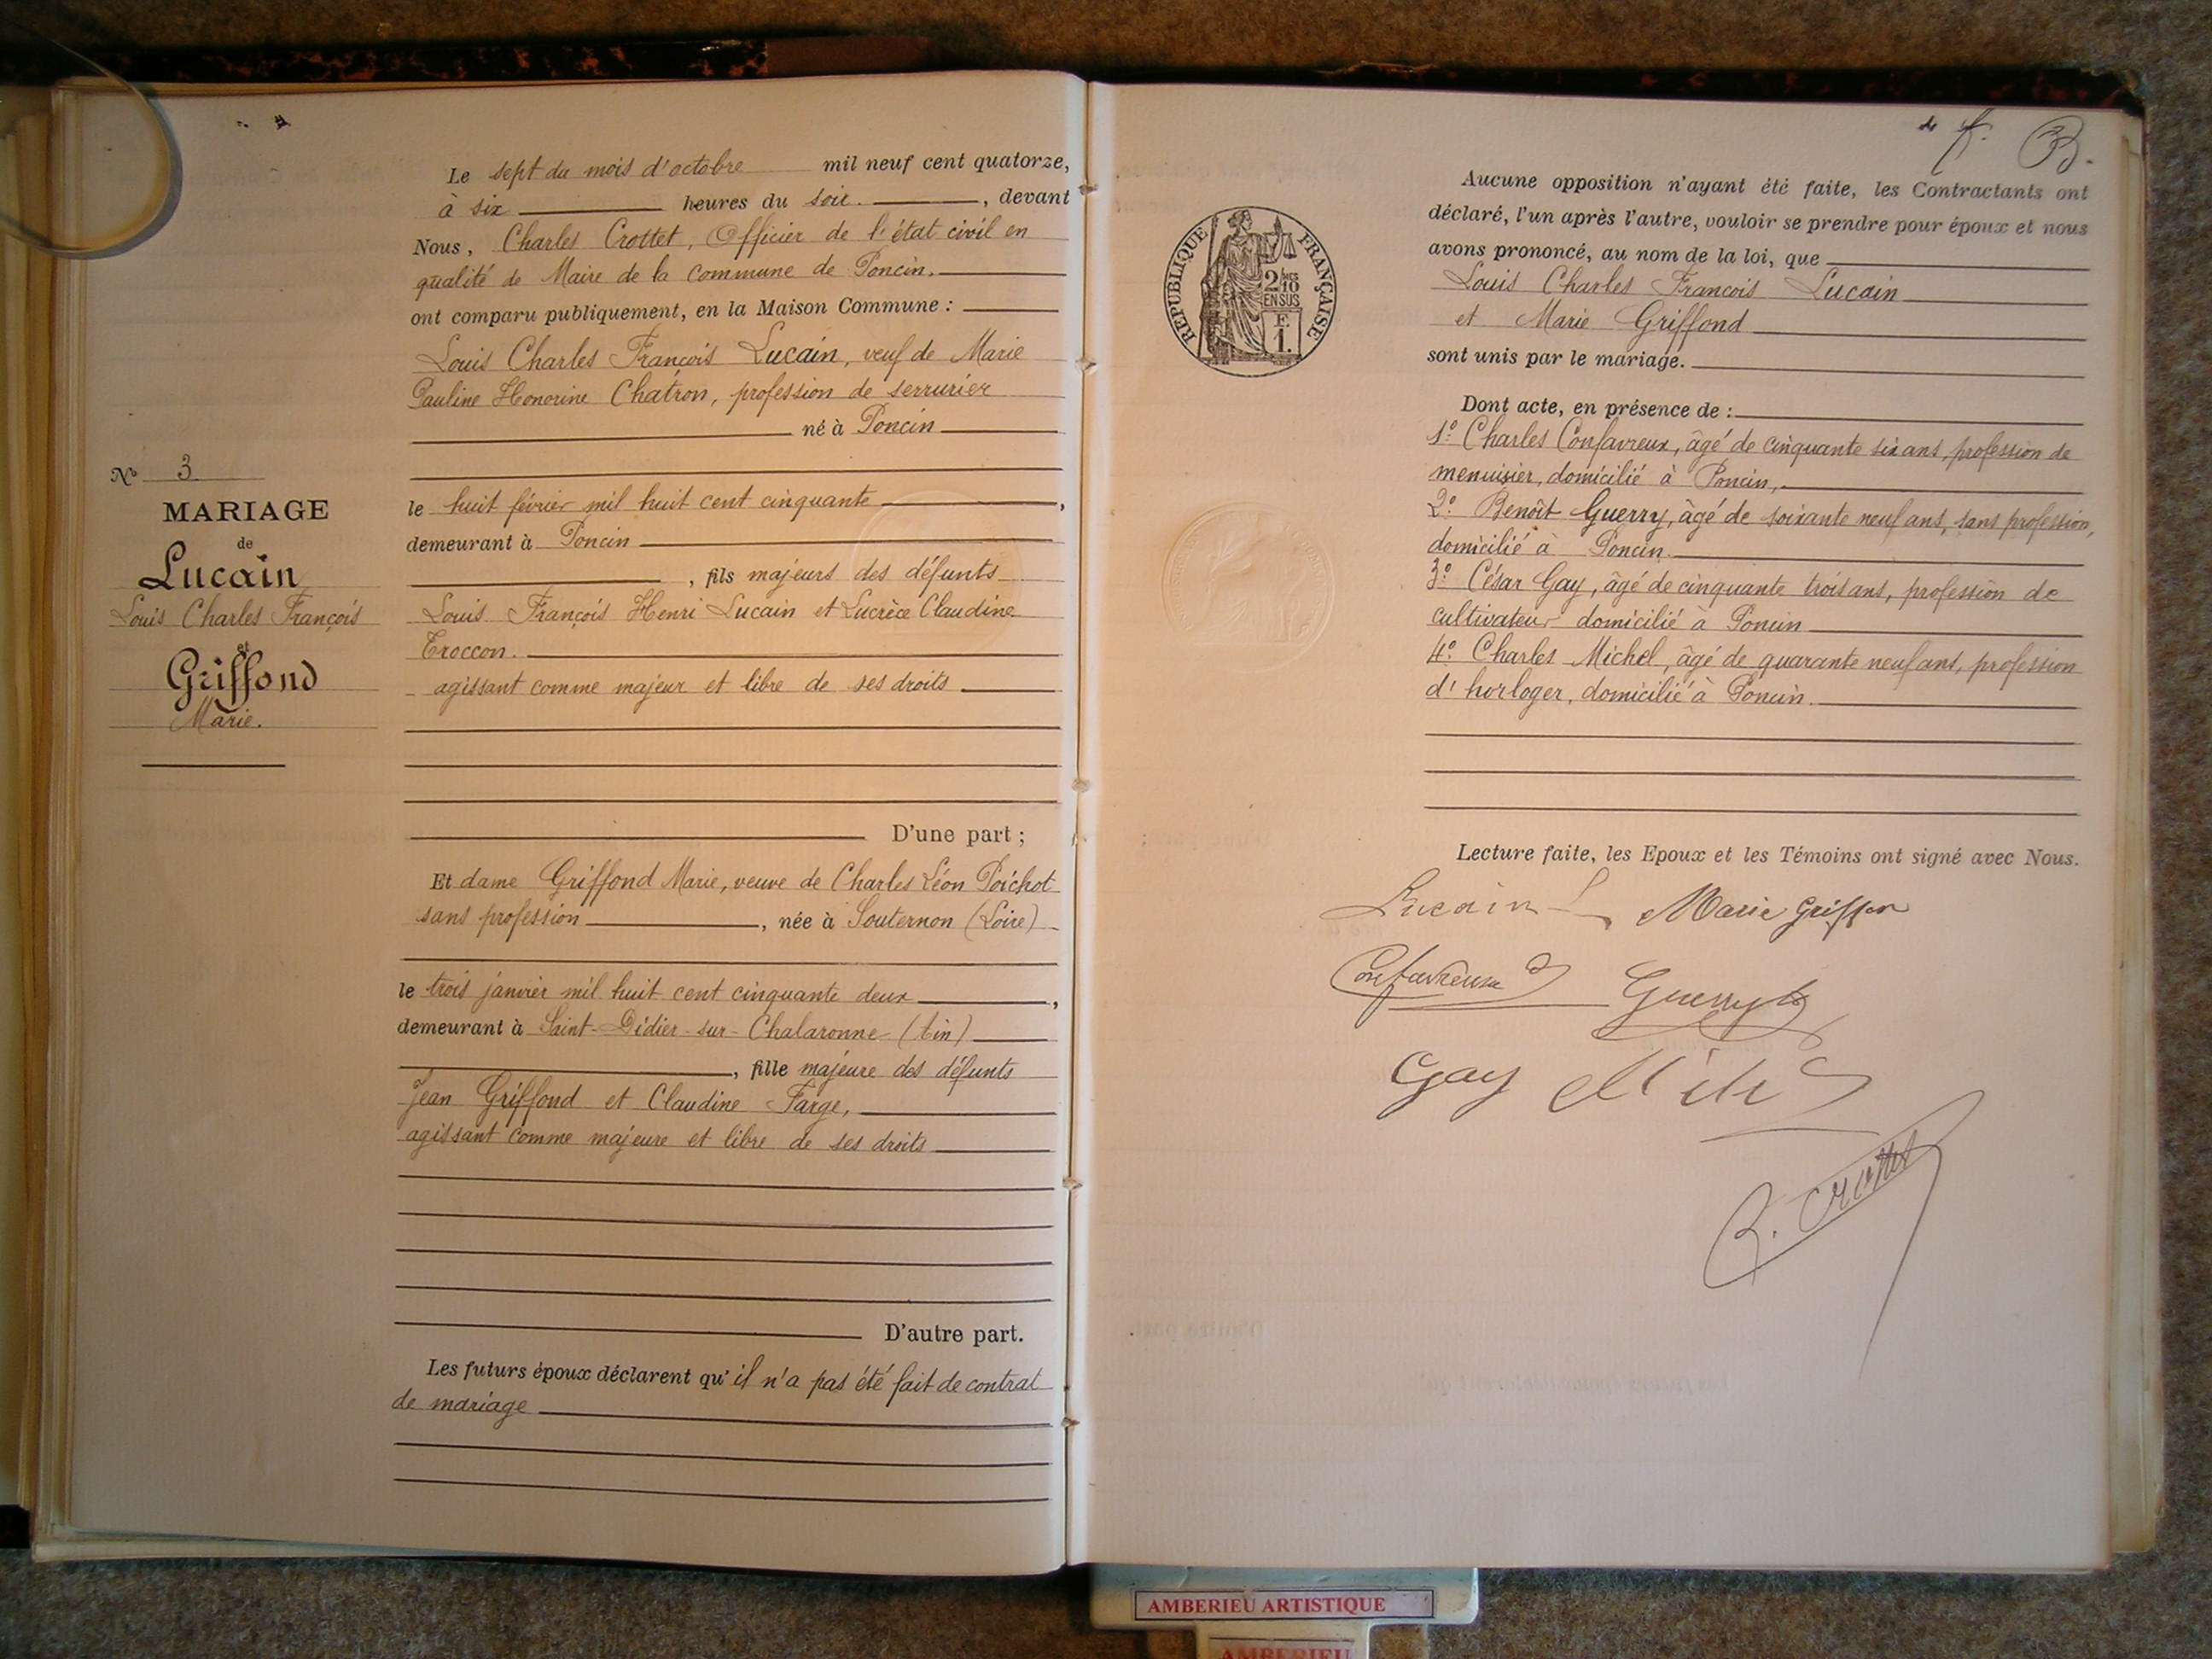 Le sept du mois d'octobre mil neuf cent quatorze,
à six heures du soir. , devant
Nous, Charles Crottet, Officier de l'état civil en
qualité de Maire de la commune de Poncin.
ont comparu publiquement, en la Maison Commune :
Louis Charles François Lucain, veuf de Marie
Pauline Honorine Chatron, profession de serrurier
né à Poncin
le huit février mil huit cent cinquante ,
demeurant à Poncin
, fils majeurs des défunts
Louis François Henri Lucain et Lucrèce Claudine
Troccon.
agissant comme majeur et libre de ses droits
D'une part ;
Et dame Griffond Marie, veuve de Charles Léon Poichot
sans profession , née à Souternon (Loire)
le trois janvier mil huit cent cinquante deux ,
demeurant à Saint-Didier-sur-Chalaronne (Ain)
, fille majeure des défunts
Jean Griffond et Claudine Farge,
agissant comme majeure et libre de ses droits
D'autre part.
Les futurs époux déclarent qu'il n'a pas été fait de contrat
de mariage
Nº 3
MARIAGE
de
Lucain
Louis Charles François
et
Griffond
Marie.
REPUBLIQUE FRANÇAISE
2/10
EN SUS
F.
1.
Aucune opposition n'ayant été faite, les Contractants ont
déclaré, l'un après l'autre, vouloir se prendre pour époux et nous
avons prononcé, au nom de la loi, que
Louis Charles François Lucain
et Marie Griffond
sont unis par le mariage.
Dont acte, en présence de :
1º Charles Confavreux, âgé de cinquante six ans, profession de
menuisier, domicilié à Poncin,
2º Benoît Guerry, âgé de soixante neuf ans, sans profession,
domicilié à Poncin.
3º César Gay, âgé de cinquante trois ans, profession de
cultivateur domicilié à Poncin
4º Charles Michel, âgé de quarante neuf ans, profession
d'horloger, domicilié à Poncin.
Lecture faite, les Epoux et les Témoins ont signé avec Nous.
Lucain L Marie Griffon
Confavreux Guerry
Gay
Crottet
AMBERIEU ARTISTIQUE
AMBERIEU